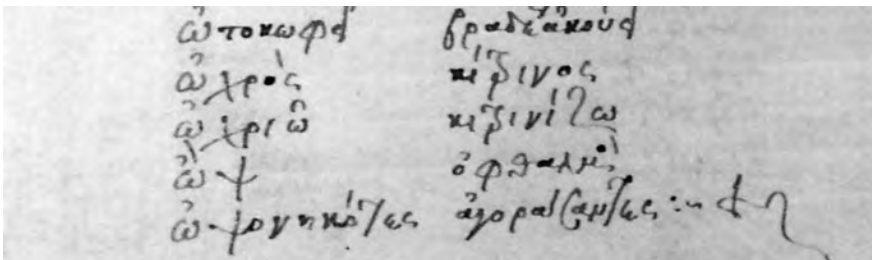 ὠτοκωφεῖ βραδέα ἀκούει
ὠχρὸς κίτρινος
ὠχριῶ κιτρινίζω
ὢψ ὀφθαλμὸς
ὠψονηκότες ἀγοράσαντες :~